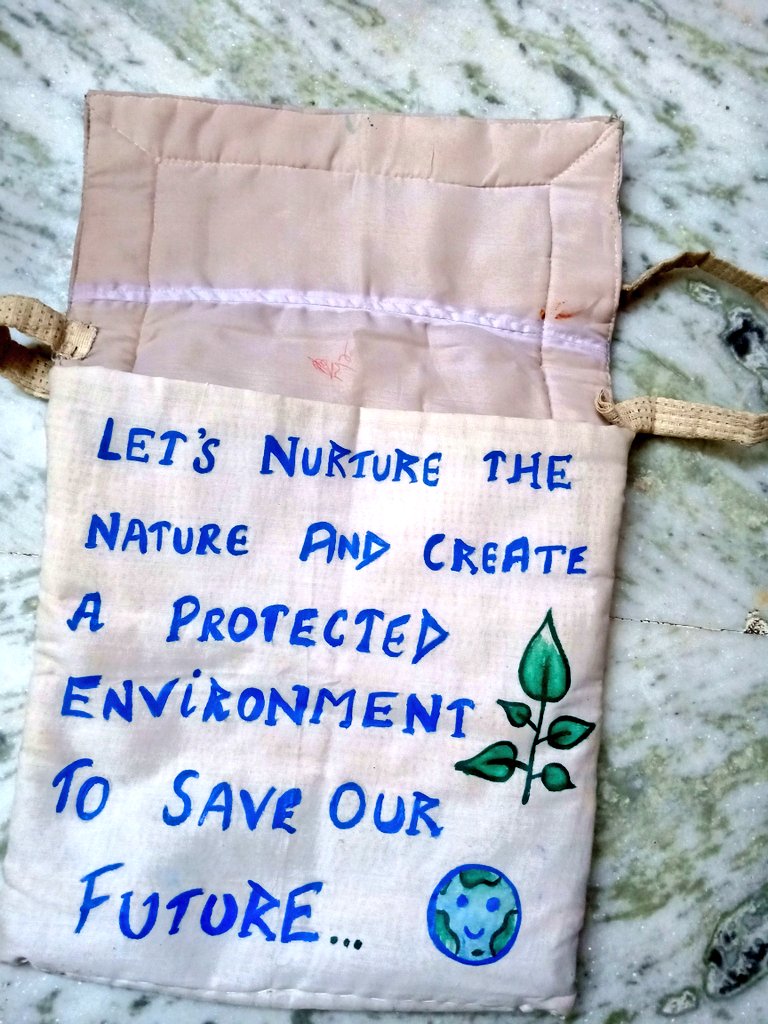 LET'S NURTURE THE
NATURE AND CREATE
A PROTECTED
ENViRONMENT
TO SAVE OUR
FUTURE...